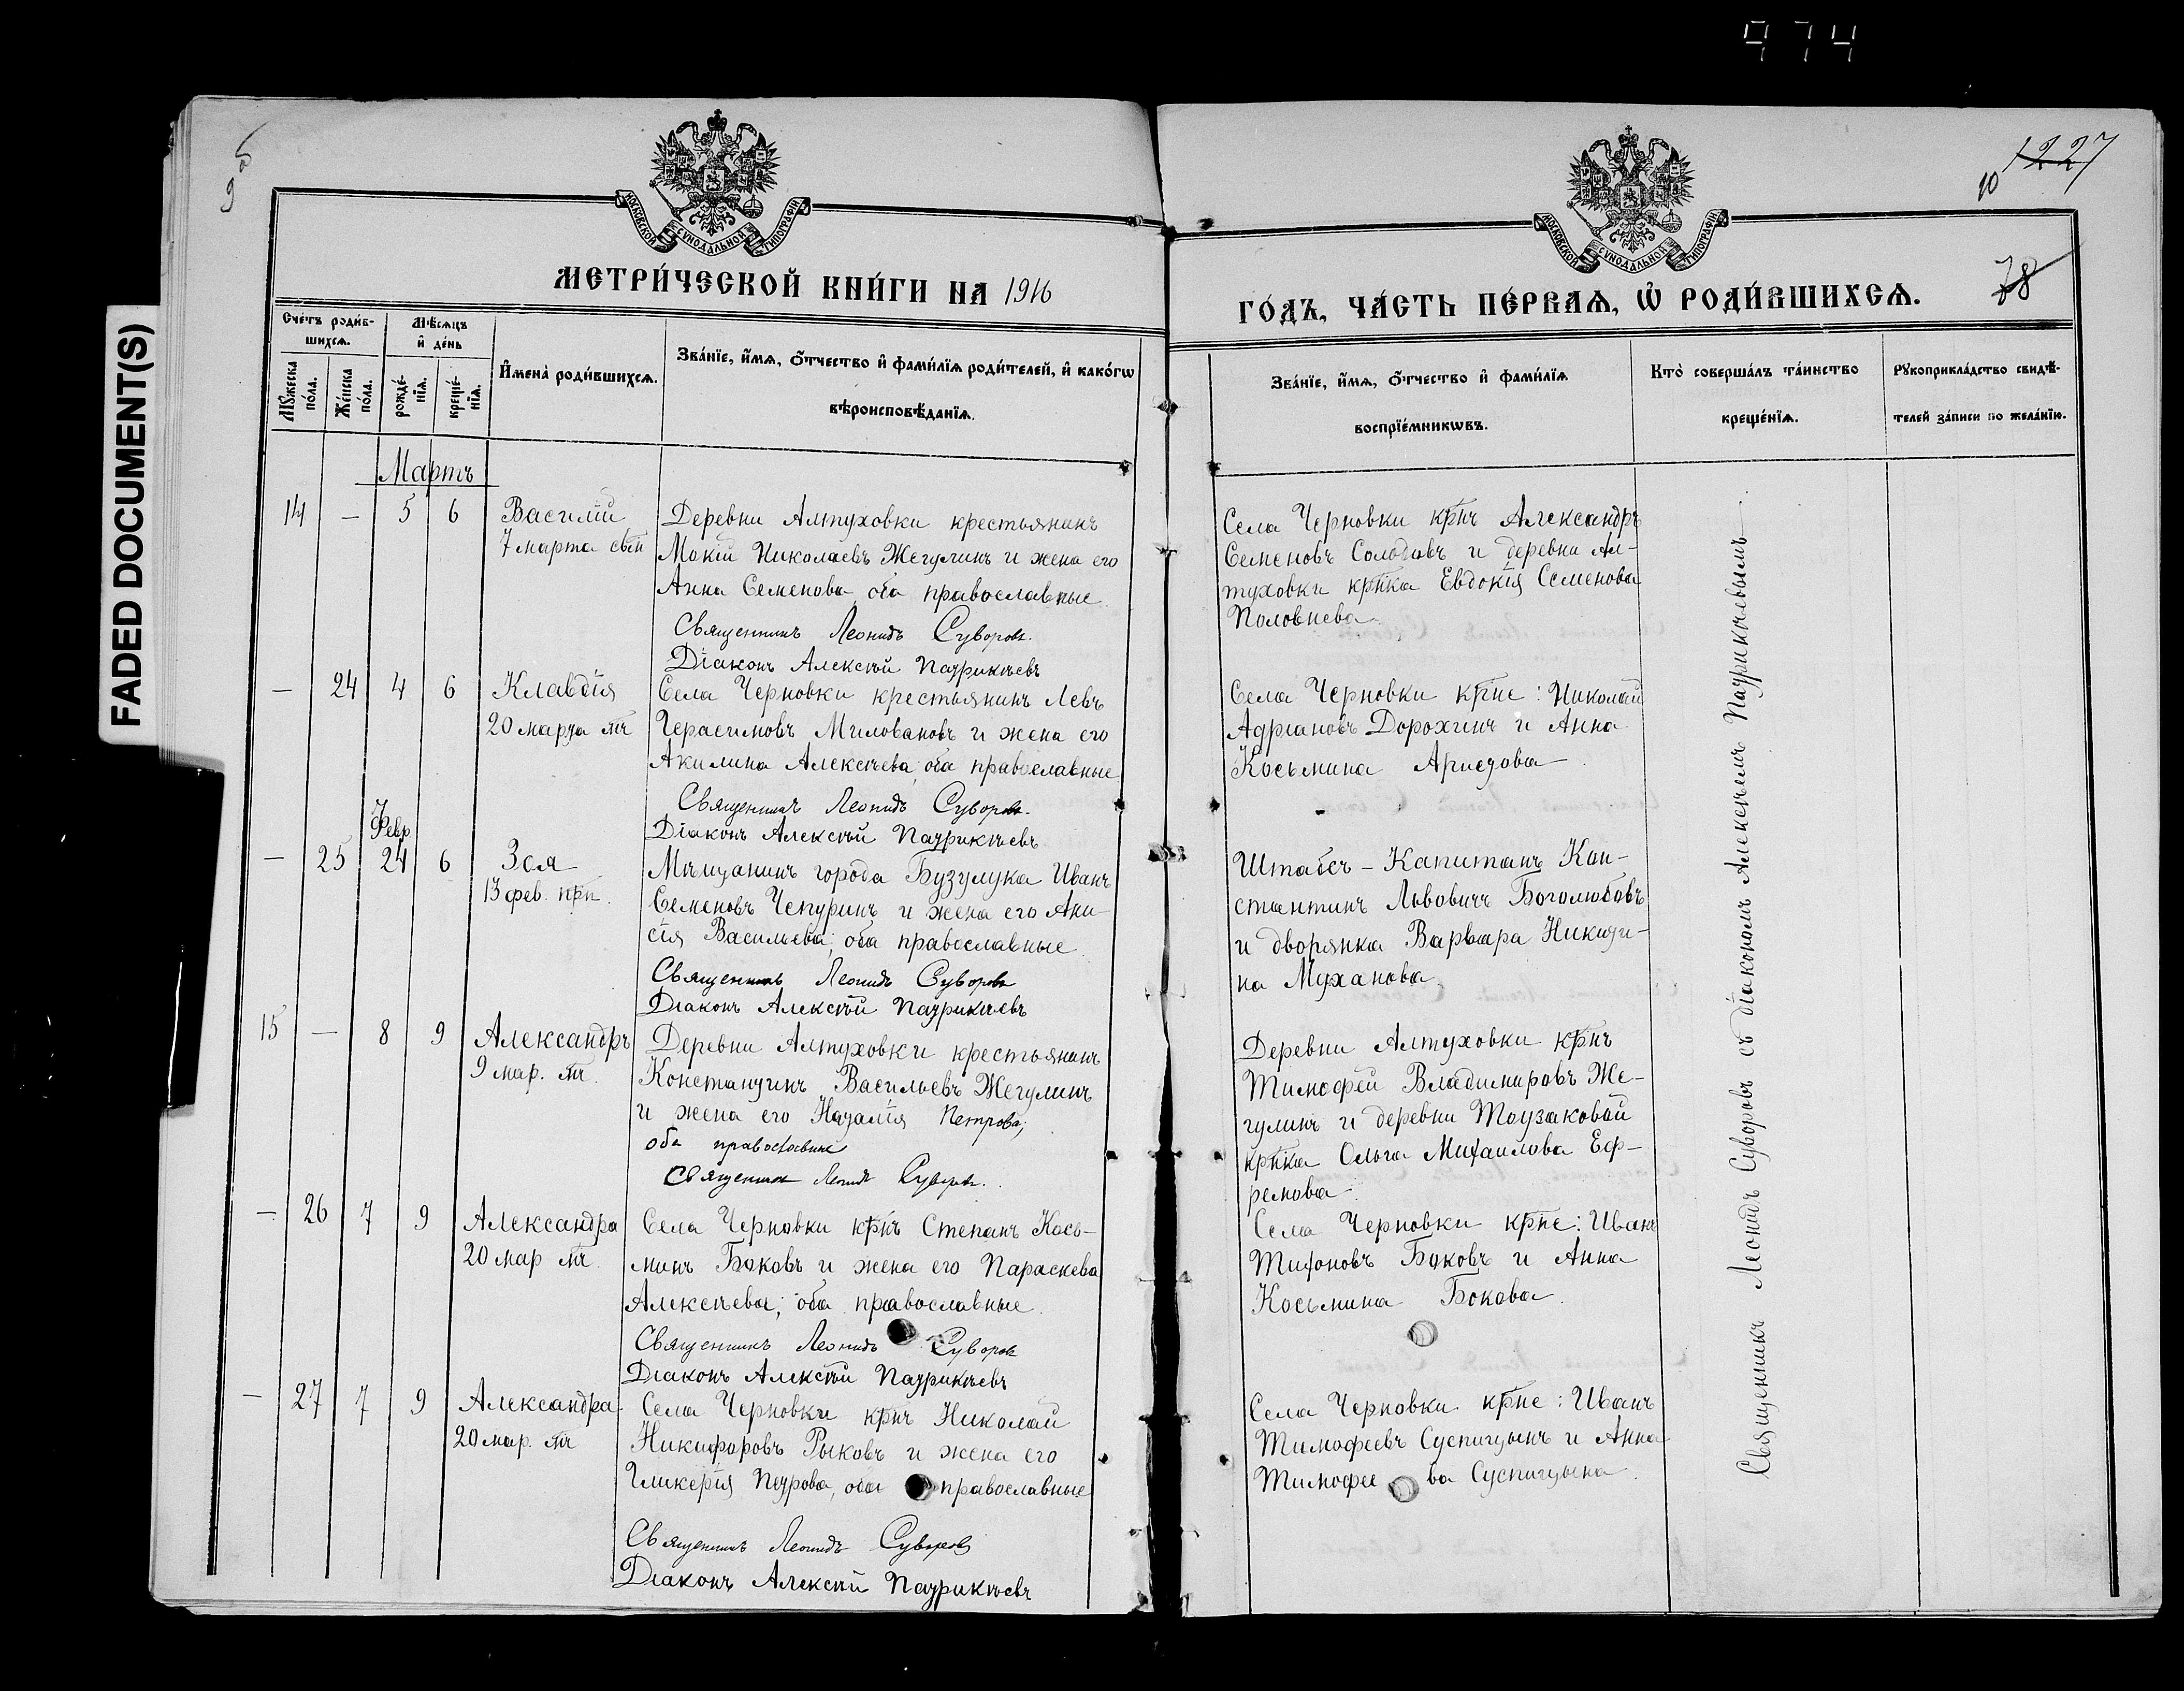 974
FADED DOCUMENT(S)
1227
10
78
МОСКОВСКОЙ СУНОДАЛЬНОЙ ТИПОГРАФІИ
МЕТРИ́ЧЕСКОЙ КНИ́ГИ НА 1916
Сче́тъ роди́в-
шихсѧ.
Мѣ́сѧцъ
и҆ де́нь
Мꙋ́жеска
по́ла.
Же́нска
по́ла.
рожде́-
нїѧ.
креще́-
нїѧ.
И҆мена̀ роди́вшихсѧ.
Зва́нїе, и҆́мѧ, ѻ҆́тчество и҆ фами́лїѧ роди́телей, и҆ како́гѡ
вѣроисповѣ́данїѧ.
Мартъ
14 — 5 6 Василій
7 марта
Деревни Алтуховки крестьянинъ
Мокій Николаевъ Жегулинъ и жена его
Анна Семенова, оба православные.
Священникъ Леонидъ Суворовъ.
Діаконъ Алексѣй Патрикѣевъ
— 24 4 6 Клавдія
20 марта мч
Села Черновки крестьянинъ Левъ
Герасимовъ Миловановъ и жена его
Акилина Алексѣева, оба православные.
Священникъ Леонидъ Суворовъ.
Діаконъ Алексѣй Патрикѣевъ
Февр
— 25 24 6 Зоя
13 фев. прп.
Мѣщанинъ города Бузулука Иванъ
Семеновъ Чепуринъ и жена его Ани-
сія Васильева; оба православные.
Священникъ Леонидъ Суворовъ
Діаконъ Алексѣй Патрикѣевъ
15 — 8 9 Александръ
9 мар. мч.
Деревни Алтуховки крестьянинъ
Константинъ Васильевъ Жегулинъ
и жена его Наталія Петрова;
оба православные
Священникъ Леонидъ Суворовъ.
— 26 7 9 Александра
20 мар мч.
Села Черновки крнъ Степанъ Кось-
минъ Боковъ и жена его Параскева
Алексѣева; оба православные.
Священникъ Леонидъ Суворовъ
Діаконъ Алексѣй Патрикѣевъ
— 27 7 9 Александра
20 мар. мч
Села Черновки крнъ Николай
Никифоровъ Рыковъ и жена его
Гликерія Петрова, оба православные
Священникъ Леонидъ Суворовъ
Діаконъ Алексѣй Патрикѣевъ
МОСКОВСКОЙ СУНОДАЛЬНОЙ ТИПОГРАФІИ
ГО́ДЪ, ЧА́СТЬ ПЕ́РВАѦ, Ѡ҆ РОДИ́ВШИХСѦ.
Зва́нїе, и҆́мѧ, ѻ҆́тчество и҆ фами́лїѧ
воспрїе́мникѡвъ.
Кто̀ соверша́лъ та́инство
креще́нїѧ.
Рꙋкоприкла́дство свидѣ́-
телей за́писи по жела́нїю.
Села Черновки крнъ Александръ
Семеновъ Солодовъ и деревни Ал-
туховки крнка Евдокія Семенова
Половнева.
Села Черновки крне: Николай
Адріановъ Дорохинъ и Анна
Косьмина Аристова
Штабсъ-Капитанъ Кон-
стантинъ Львовичъ Боголюбовъ
и дворянка Варвара Никити-
на Муханова.
Деревни Алтуховки крнъ
Тимофей Владимировъ Же-
гулинъ и деревни Тоузаковой
крнка Ольга Михаилова Еф-
ремова.
Села Черновки крне: Иванъ
Тихоновъ Боковъ и Анна
Косьмина Бокова.
Села Черновки крне: Иванъ
Тимофеевъ Суспицынъ и Анна
Тимофеева Суспицына.
Священникъ Леонидъ Суворовъ съ діакономъ Алексѣемъ Патрикѣевымъ